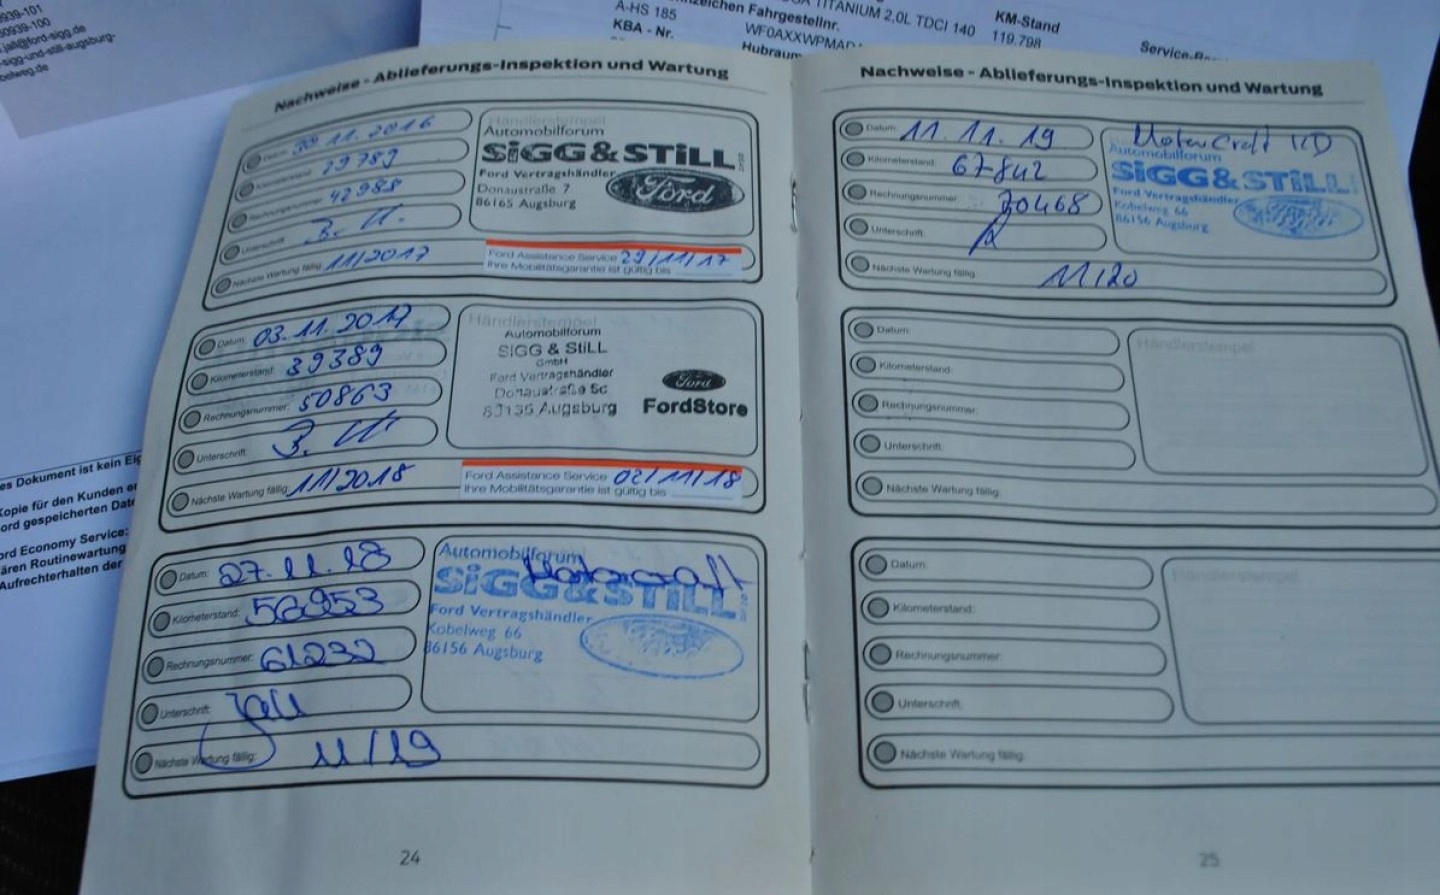 939-101
30939-100
jall@ford-sigg.de
-sigg-und-still-augsburg-
obelweg.de
TITANIUM 2,0L TDCI 140
nzeichen Fahrgestellnr.
A-HS 185
WF0AXXWPMAD
KM-Stand
119.798
KBA - Nr.
Hubraum
es Dokument ist kein Eig
Kopie für den Kunden
ord gespeicherten Date
ord Economy Service:
ären Routinewartung
Aufrechterhalten der
Nachweise - Ablieferungs-Inspektion und Wartung
Datum: 30.11.2016
Kilometerstand: 29789
Rechnungsnummer: 42988
Unterschrift:
Nächste Wartung fällig: 11/2017
Händlerstempel
Automobilforum
SiGG & STiLL
Ford Vertragshändler
Donaustraße 7
86165 Augsburg
Ford
Ford Assistance Service 29/11/17
Ihre Mobilitätsgarantie ist gültig bis
Datum: 03.11.2017
Kilometerstand: 39389
Rechnungsnummer: 50863
Unterschrift:
Nächste Wartung fällig: 11/2018
Händlerstempel
Automobilforum
SIGG & STiLL
GmbH
Ford Vertragshändler
Donaustraße 5c
Augsburg
Ford
FordStore
Ford Assistance Service 02/11/18
Ihre Mobilitätsgarantie ist gültig bis
Datum: 27.11.18
Kilometerstand: 56953
Rechnungsnummer: 61232
Unterschrift: Jall
Nächste Wartung fällig: 11/19
Automobilforum
Motorcraft
SiGG & STiLL
Ford Vertragshändler
Kobelweg 66
86156 Augsburg
24
Nachweise - Ablieferungs-Inspektion und Wartung
Datum: 11.11.19
Kilometerstand: 67842
Rechnungsnummer: 70468
Unterschrift:
Nächste Wartung fällig: 11/20
Motorcraft
Automobilforum
SiGG & STiLL
Ford Vertragshändler
Kobelweg 66
86156 Augsburg
Datum:
Kilometerstand:
Rechnungsnummer:
Unterschrift:
Nächste Wartung fällig:
Händlerstempel
Datum:
Kilometerstand:
Rechnungsnummer:
Unterschrift:
Nächste Wartung fällig:
Händlerstempel
25